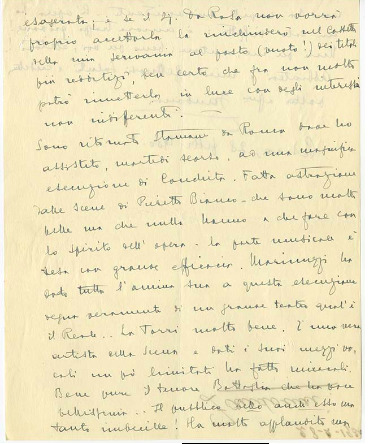 esagerata; e se il Sig. Da Rosa non vorrà
proprio accettarla la rinchiuderò nel cassetto
della mia scrivania al posto (vuoto!) dei titoli
più redditizi, ben certo che fra non molto
potrò rimetterla in luce con degli interessi
non indifferenti.
Sono ritornato stamane da Roma dove ho
assistito, martedì scorso, ad una magnifica
esecuzione di Conchita. Fatta astrazione
dalle scene di Pieretto Bianco - che sono molto
belle ma che nulla hanno a che fare con
lo spirito dell'opera - la parte musicale è
resa con grande efficacia. Marinuzzi ha
dato tutta l'anima sua a questa esecuzione
degna veramente di un grande teatro qual'è
il Reale.. La Torri molto bene. È una vera
artista della scena e dati i suoi mezzi vo,
cali un pò limitati ha fatto miracoli.
Bene pure il tenore Battaglia che ha voce
bellissima.. Il pubblico anch'esso
tanto imbecille! Ha molto applaudito ma